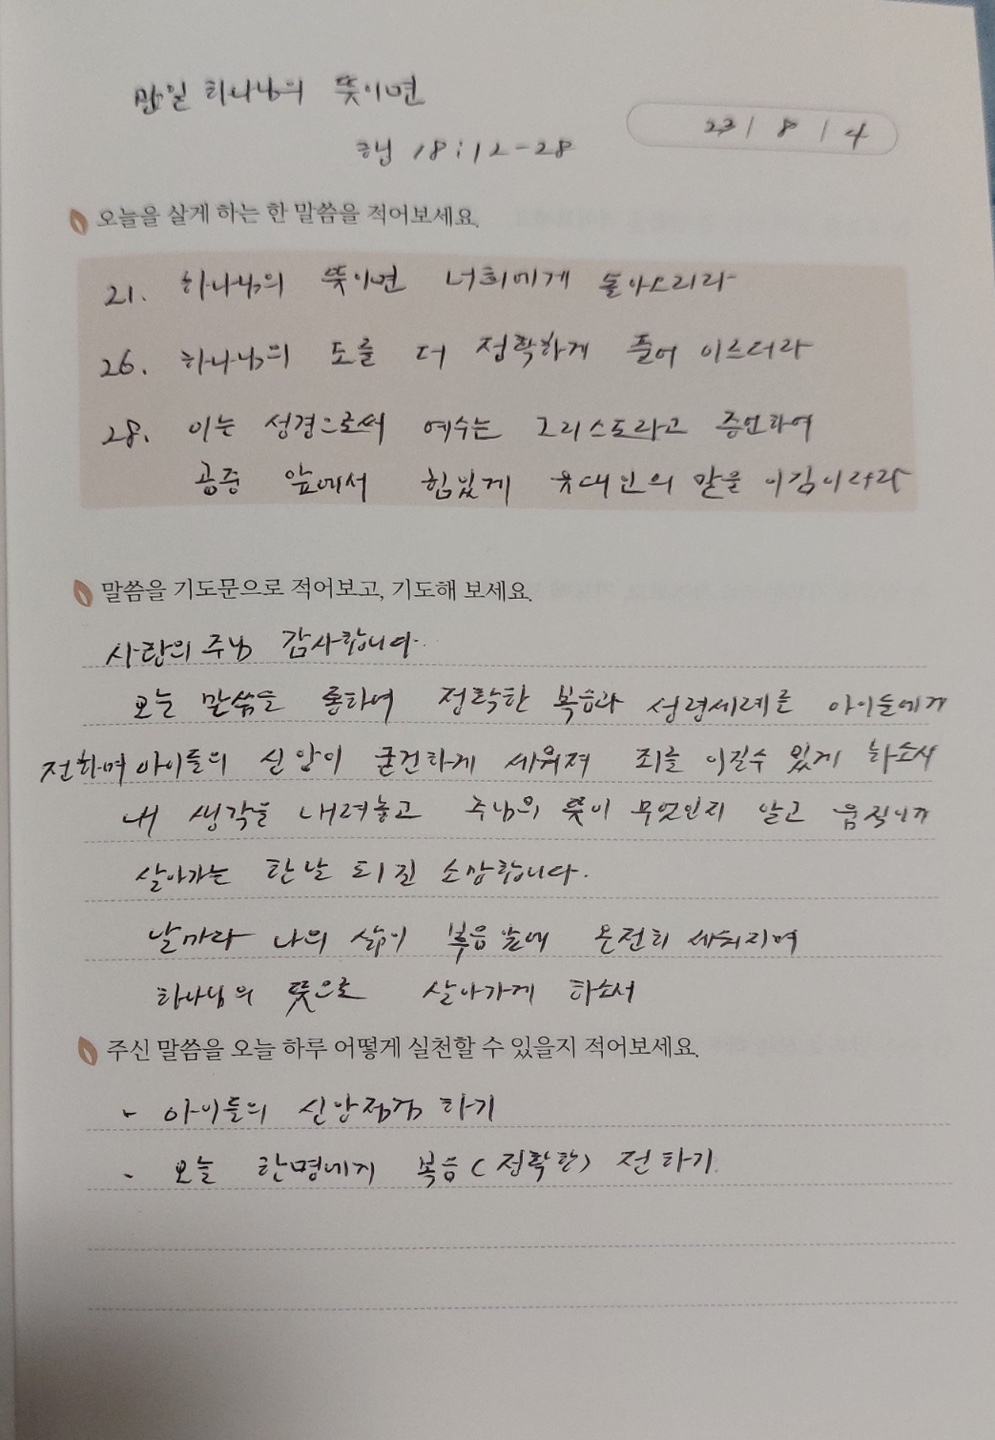 만일 하나님의 뜻이면
행 18:12-28
23 / 8 / 4
오늘을 살게 하는 한 말씀을 적어보세요.
21. 하나님의 뜻이면 너희에게 돌아오리라
26. 하나님의 도를 더 정확하게 풀어 이르더라
28. 이는 성경으로써 예수는 그리스도라고 증언하여
공중 앞에서 힘있게 유대인의 말을 이김이러라
말씀을 기도문으로 적어보고, 기도해 보세요.
사랑의 주님 감사합니다.
오늘 말씀을 통하여 정확한 복음과 성령세례를 아이들에게
전하며 아이들의 신앙이 굳건하게 세워져 죄를 이길수 있게 하소서
내 생각을 내려놓고 주님의 뜻이 무엇인지 알고 움직이게
살아가는 한날 되길 소망합니다.
날마다 나의 삶이 복음앞에 온전히 세워지며
하나님의 뜻으로 살아가게 하소서
주신 말씀을 오늘 하루 어떻게 실천할 수 있을지 적어보세요.
- 아이들의 신앙점검 하기
- 오늘 한명에게 복음(정확한) 전하기.